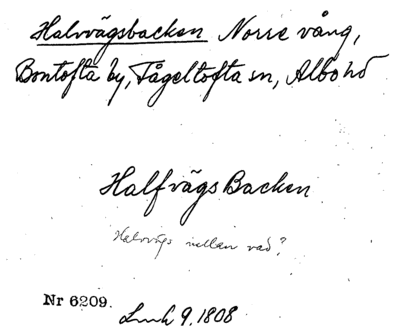 Halvvägsbacken Norre vång,
Bontofta by, Fågeltofta sn, Albo hd
HalfvägsBacken
Halvvägs mellan vad?
Nr 6209.
9, 1808